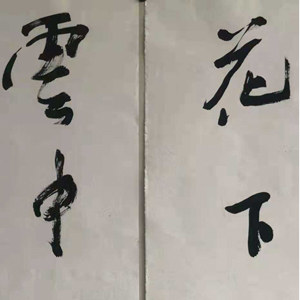 花下
雲中